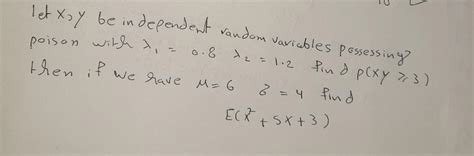 let X, Y be independent random variables possessing?
poison with λ₁ = 0.8 λ₂ = 1.2 find p(XY ≥ 3)
then if we have μ = 6 δ = 4 find
E(X² + 5X + 3)